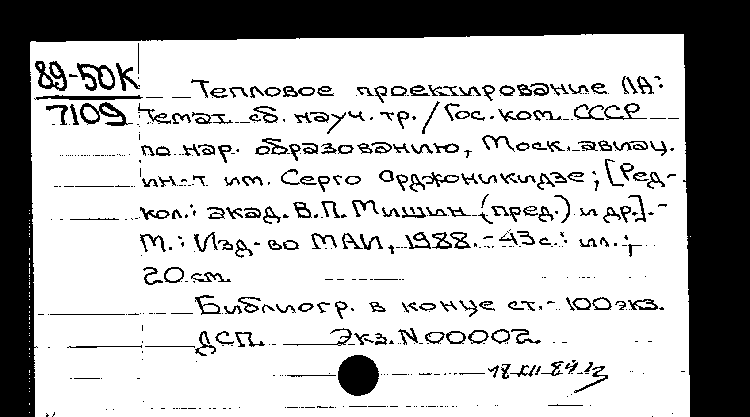 89-50К
7109
Тепловое проектирование ЛА:
Темат. сб. науч. тр. / Гос. ком. СССР
по нар. образованию, Моск. авиац.
ин-т им. Серго Орджоникидзе; [Ред-
кол.: акад. В.П. Мишин (пред.) и др.].-
М.: Изд-во МАИ, 1988.-43с.: ил.;
20 см.
Библиогр. в конце ст.- 100 экз.
ДСП. Экз. N 00002.
18 XII 89